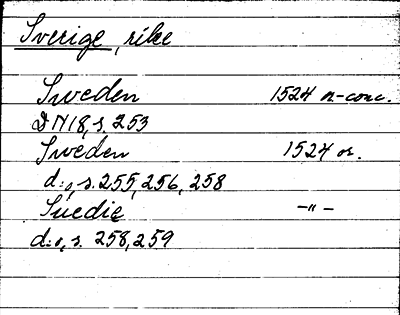 Sverige, rike
Sweden 1524 or-conc.
DN 18, s. 253
Sweden 1524 or.
d:o, s. 255, 256, 258
Suedie -"-
d:o, s. 258, 259